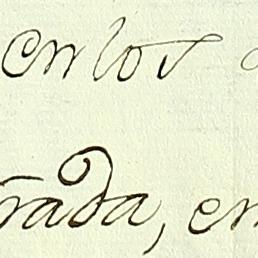 en los
rada, en